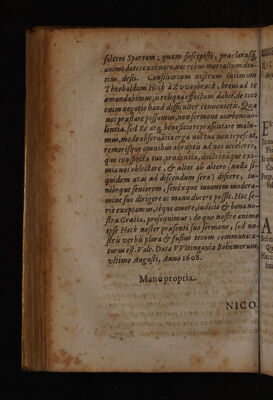 saltem Spartam, quam suscepisti, præclarasq́;
animi dotes exornare, ac rerum mortalium diu-
tius deßis. Consiliarium nostrum intimum
Theobaldum Hock à Zvviaybruck, brevi ad te
amandabimus, ut reliqua effectum dabit, de toto
enim negotio haud difficulter convenietur. Qua
nos præstare possumus, non sermone aut benevo-
lentia, sed Re atq́; beneficio repræsentare malu-
mus, modo observâtia erga nos tua non tepescat,
remorisque omnibus abruptis ad nos accelleres,
quo conspectu tuo, prudentia, doctrina que exi-
mia nos oblectare, & alter ab altero (nulla si-
quidem ætas ad discendum sera) discere, iu-
niorque seniorem, senéxque iuvenem modera-
mine suo dirigere ac manu ducere poßit. Hoc se-
rio exoptamus, téque amore, iudicio & bona no-
stra Gratia, prosequimur: de quo nostro animo
ipse Hock noster præsenti suo sermone, sed no-
stris verbis plura & fusius tecum communica-
turus est. Vale. Data VVitingavia Bohemorum
ultimo Augusti, Anno 1608.
Manu propria.
NICO